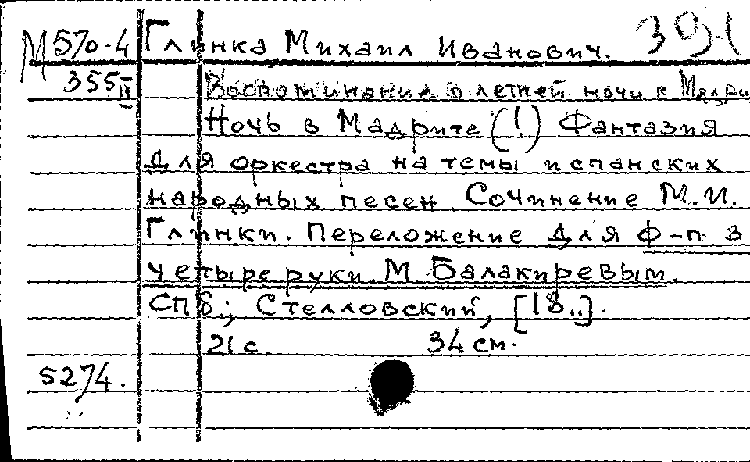 М 570-4 Глинка Михаил Иванович. 391
355 II Воспоминания о летней ночи в Мадри
Ночь в Мадрите (!) Фантазия
для оркестра на темы испанских
народных песен. Сочинение М.И.
Глинки. Переложение для ф-п. в
четыре руки М. Балакиревым.
СПб., Стелловский, [18..].
21 с. 34 см.
5274.